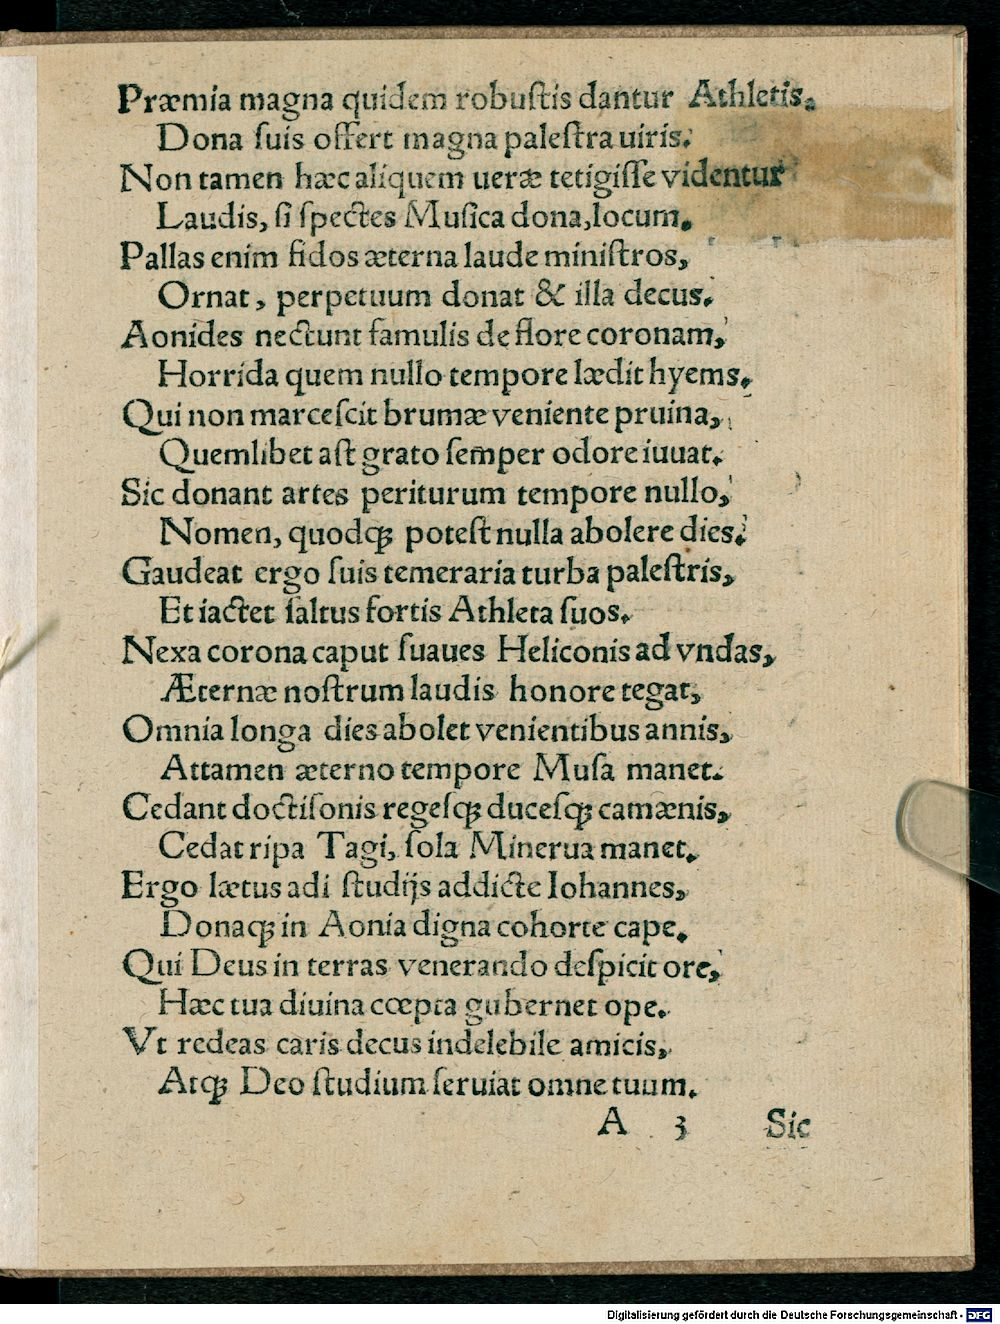 Præmia magna quidem robuſtis dantur Athletis,
Dona ſuis offert magna paleſtra uiris.
Non tamen hæc aliquem ueræ tetigiſſe videntur
Laudis, ſi ſpectes Muſica dona, locum.
Pallas enim fidos æterna laude miniſtros,
Ornat, perpetuum donat & illa decus.
Aonides nectunt famulis de flore coronam,
Horrida quem nullo tempore lædit hyems.
Qui non marceſcit brumæ veniente pruina,
Quemlibet aſt grato ſemper odore iuuat.
Sic donant artes periturum tempore nullo,
Nomen, quodq́; poteſt nulla abolere dies.
Gaudeat ergo ſuis temeraria turba paleſtris,
Et iactet ſaltus fortis Athleta ſuos.
Nexa corona caput ſuaues Heliconis ad vndas,
Æternæ noſtrum laudis honore tegat,
Omnia longa dies abolet venientibus annis,
Attamen æterno tempore Muſa manet.
Cedant doctiſonis regeſq; duceſq; camænis,
Cedat ripa Tagi, ſola Minerua manet.
Ergo lætus adi ſtudijs addicte Iohannes,
Donaq; in Aonia digna cohorte cape.
Qui Deus in terras venerando deſpicit ore,
Hæc tua diuina cœpta gubernet ope.
Vt redeas caris decus indelebile amicis,
Atq; Deo ſtudium ſeruiat omne tuum.
A 3 Sic
Digitalisierung gefördert durch die Deutsche Forschungsgemeinschaft - DFG